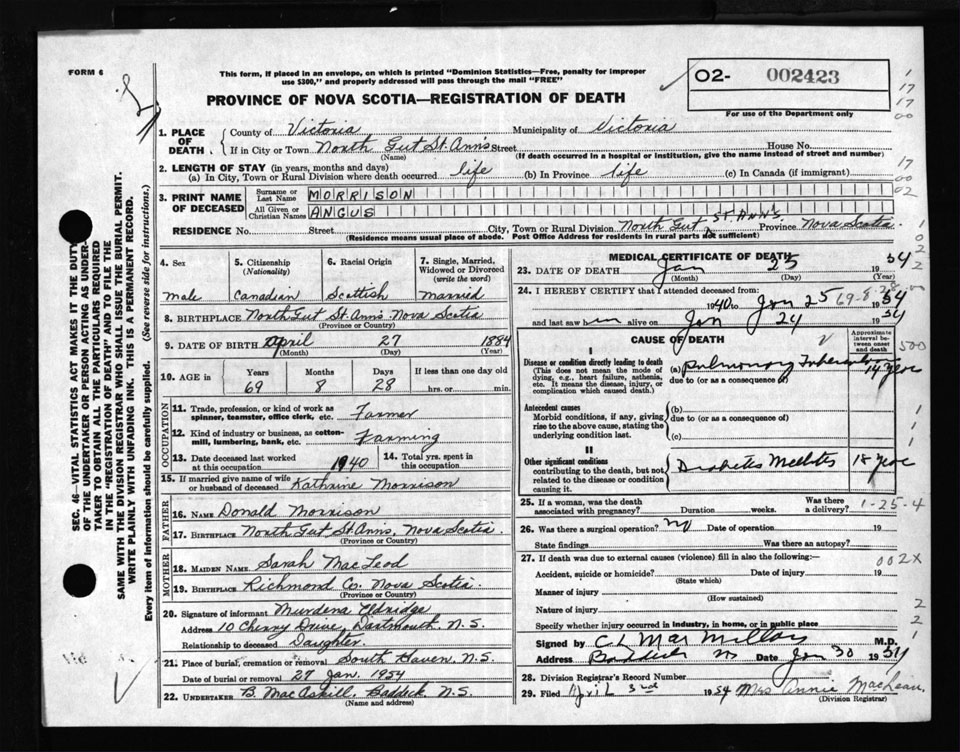 FORM 6
This form, if placed in an envelope, on which is printed "Dominion Statistics—Free, penalty for improper
use $300," and properly addressed will pass through the mail "FREE"
O2- 002423
PROVINCE OF NOVA SCOTIA—REGISTRATION OF DEATH
For use of the Department only
1. PLACE OF DEATH. County of Victoria Municipality of Victoria
If in City or Town North Gut St. Ann's Street House No.
(Name) (If death occurred in a hospital or institution, give the name instead of street and number)
2. LENGTH OF STAY (in years, months and days)
(a) In City, Town or Rural Division where death occurred life (b) In Province life (c) In Canada (if immigrant)
3. PRINT NAME OF DECEASED
Surname or Last Name MORRISON
All Given or Christian Names ANGUS
RESIDENCE No. Street City, Town or Rural Division North Gut St. Ann's Province Nova Scotia.
(Residence means usual place of abode. Post Office Address for residents in rural parts not sufficient)
4. Sex
male
5. Citizenship
(Nationality)
Canadian
6. Racial Origin
Scottish
7. Single, Married, Widowed or Divorced
(write the word)
Married
8. BIRTHPLACE North Gut St. Ann's Nova Scotia
(Province or Country)
9. DATE OF BIRTH April 27 1884
(Month) (Day) (Year)
10. AGE in Years Months Days If less than one day old
69 8 28 hrs. or min.
OCCUPATION
11. Trade, profession, or kind of work as spinner, teamster, office clerk, etc. Farmer
12. Kind of industry or business, as cotton-mill, lumbering, bank, etc. Farming
13. Date deceased last worked at this occupation 1940 14. Total yrs. spent in this occupation
15. If married give name of wife or husband of deceased Kathrine Morrison
FATHER
16. NAME Donald Morrison
17. BIRTHPLACE North Gut St. Anns, Nova Scotia.
(Province or Country)
MOTHER
18. MAIDEN NAME Sarah MacLeod
19. BIRTHPLACE Richmond Co. Nova Scotia.
(Province or Country)
20. Signature of informant Murdena Eldridge
Address 10 Cherry Drive, Dartmouth. N.S.
Relationship to deceased Daughter.
21. Place of burial, cremation or removal South Haven, N.S.
Date of burial or removal 27 Jan. 1954
22. UNDERTAKER B. MacAskill, Baddeck, N.S.
(Name and address)
MEDICAL CERTIFICATE OF DEATH
23. DATE OF DEATH Jan 25 1954
(Month) (Day)
24. I HEREBY CERTIFY that I attended deceased from:
1940 to Jan 25 1954
69-8-28
and last saw him alive on Jan 24 1954
CAUSE OF DEATH
Approximate interval between onset and death
I
Disease or condition directly leading to death
(This does not mean the mode of dying, e.g., heart failure, asthenia, etc. It means the disease, injury, or complication which caused death.)
(a) Pulmonary Tuberculosis 14 years
due to (or as a consequence of)
Antecedent causes
Morbid conditions, if any, giving rise to the above cause, stating the underlying condition last.
(b)
due to (or as a consequence of)
(c)
II
Other significant conditions
contributing to the death, but not related to the disease or condition causing it.
Diabetes Mellitus 18 years
25. If a woman, was the death associated with pregnancy? Duration weeks. Was there a delivery?
1-25-4
26. Was there a surgical operation? no Date of operation 19
State findings Was there an autopsy?
27. If death was due to external causes (violence) fill in also the following:—
002X
Accident, suicide or homicide? Date of injury 19
(State which)
Manner of injury
(How sustained)
Nature of injury
Specify whether injury occurred in industry, in home, or in public place
Signed by C L MacMillan M.D.
Address Baddeck NS Date Jan 30 1954
28. Division Registrar's Record Number
29. Filed April 3rd 1954 Mrs Annie MacLean.
(Division Registrar)
SEC. 46—VITAL STATISTICS ACT MAKES IT THE DUTY
OF THE UNDERTAKER OR PERSON ACTING AS UNDER-
TAKER TO OBTAIN ALL THE PARTICULARS REQUIRED
IN THE "REGISTRATION OF DEATH" AND TO FILE THE
SAME WITH THE DIVISION REGISTRAR WHO SHALL ISSUE THE BURIAL PERMIT.
WRITE PLAINLY WITH UNFADING INK. THIS IS A PERMANENT RECORD.
Every item of information should be carefully supplied. (See reverse side for instructions.)